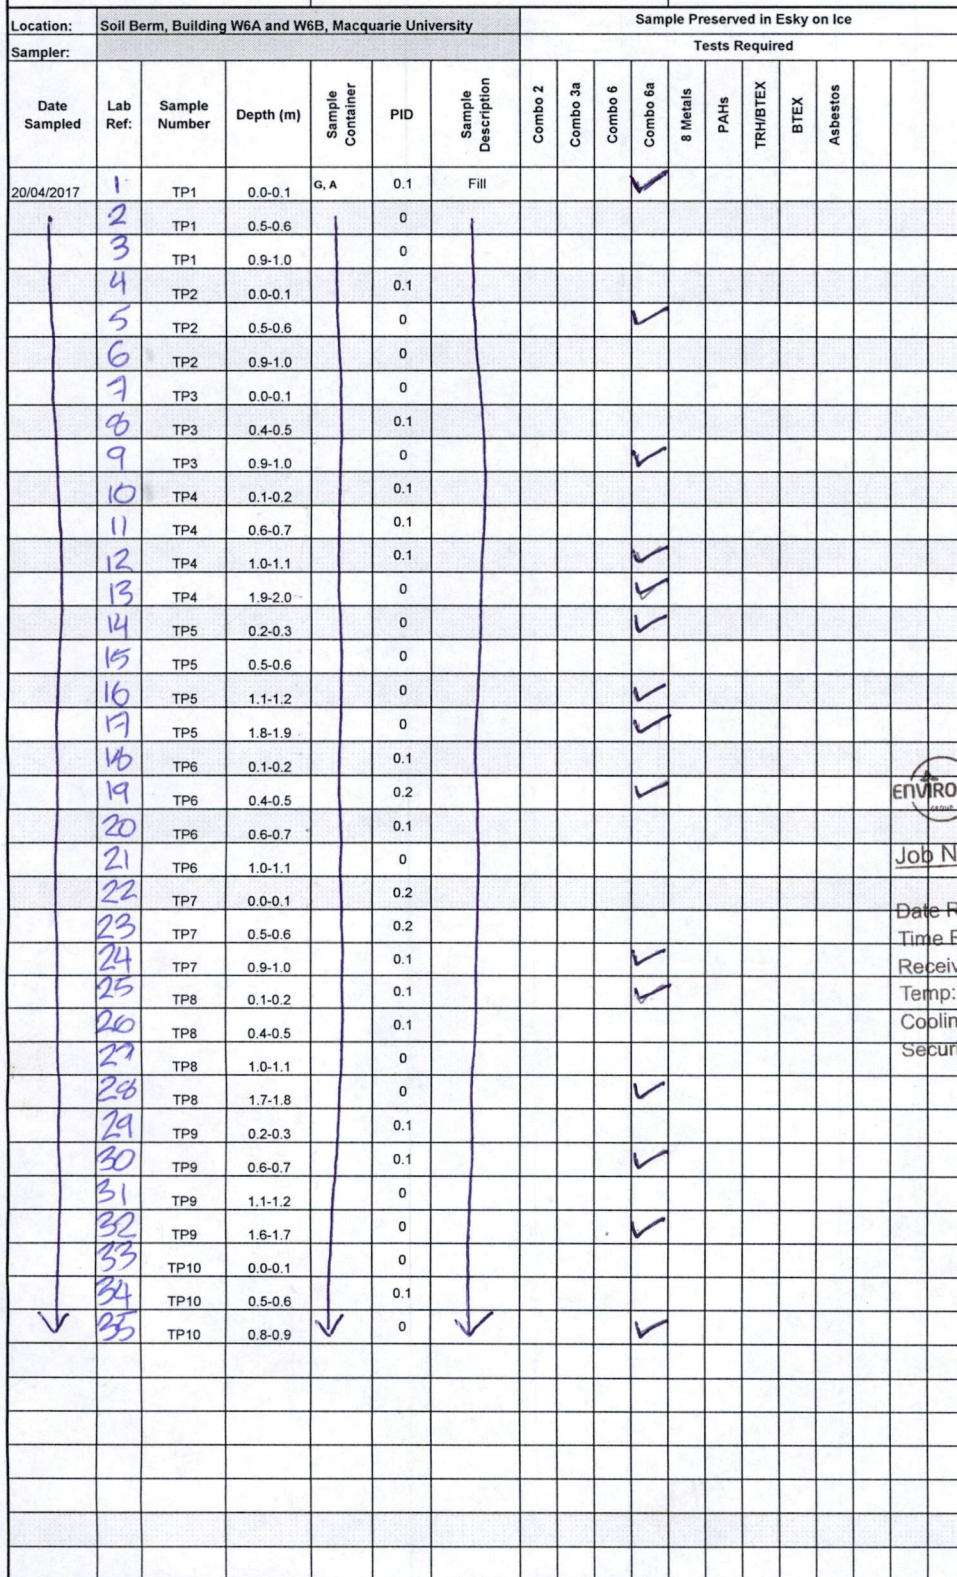 Location: Soil Berm, Building W6A and W6B, Macquarie University Sample Preserved in Esky on Ice
Sampler: Tests Required
Date Sampled Lab Ref: Sample Number Depth (m) Sample Container PID Sample Description Combo 2 Combo 3a Combo 6 Combo 6a 8 Metals PAHs TRH/BTEX BTEX Asbestos
20/04/2017 1 TP1 0.0-0.1 G, A 0.1 Fill ✓
2 TP1 0.5-0.6 0
3 TP1 0.9-1.0 0
4 TP2 0.0-0.1 0.1
5 TP2 0.5-0.6 0 ✓
6 TP2 0.9-1.0 0
7 TP3 0.0-0.1 0
8 TP3 0.4-0.5 0.1
9 TP3 0.9-1.0 0 ✓
10 TP4 0.1-0.2 0.1
11 TP4 0.6-0.7 0.1
12 TP4 1.0-1.1 0.1 ✓
13 TP4 1.9-2.0 0 ✓
14 TP5 0.2-0.3 0 ✓
15 TP5 0.5-0.6 0
16 TP5 1.1-1.2 0 ✓
17 TP5 1.8-1.9 0 ✓
18 TP6 0.1-0.2 0.1
19 TP6 0.4-0.5 0.2 ✓
20 TP6 0.6-0.7 0.1
21 TP6 1.0-1.1 0
22 TP7 0.0-0.1 0.2
23 TP7 0.5-0.6 0.2
24 TP7 0.9-1.0 0.1 ✓
25 TP8 0.1-0.2 0.1 ✓
26 TP8 0.4-0.5 0.1
27 TP8 1.0-1.1 0
28 TP8 1.7-1.8 0 ✓
29 TP9 0.2-0.3 0.1
30 TP9 0.6-0.7 0.1 ✓
31 TP9 1.1-1.2 0
32 TP9 1.6-1.7 0 ✓
33 TP10 0.0-0.1 0
34 TP10 0.5-0.6 0.1
35 TP10 0.8-0.9 0 ✓
ENVIRO
Job N
Date R
Time
Receiv
Temp:
Coolin
Securi